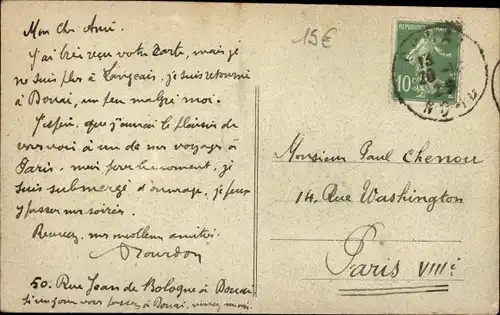 Mon Cher Ami.
J'ai bien reçu votre Carte, mais je
ne suis plus à Langeais, je suis retourné
à Douai, un peu malgré moi.
J'espère que j'aurai le plaisir de
vous voir à un de mes voyages à
Paris. mais pour le moment, je
suis submergé d'ouvrage, je peux
y passer mes soirées.
Recevez, mes meilleures amitiés
Dourdon
50. Rue Jean de Bologne à Douai.
Si un jour vous passez à Douai, venez
15€
10
NORD
Monsieur Paul Chenou
14. Rue Washington
Paris VIIIe